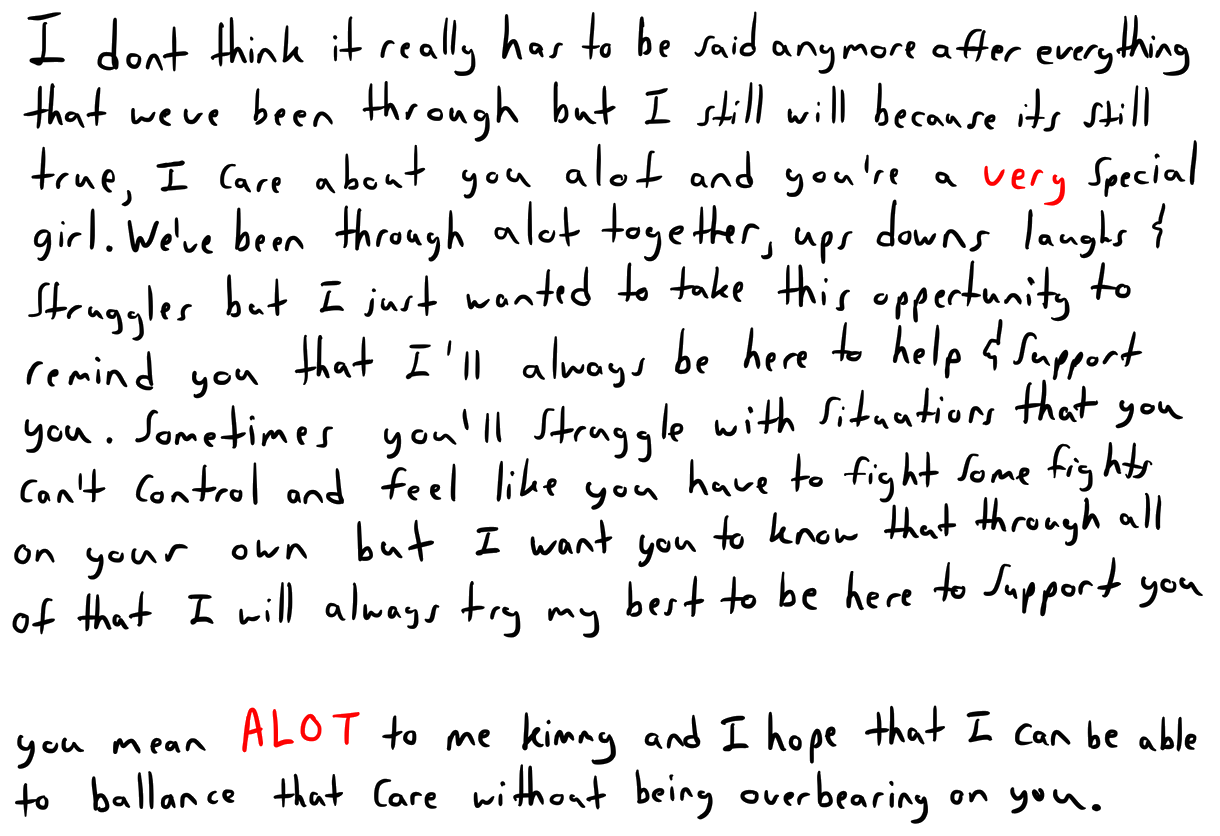 I dont think it really has to be said anymore after everything
that weve been through but I still will because its still
true, I care about you alot and you're a very special
girl. We've been through alot together, ups downs laughs &
struggles but I just wanted to take this oppertunity to
remind you that I'll always be here to help & support
you. Sometimes you'll struggle with situations that you
can't control and feel like you have to fight some fights
on your own but I want you to know that through all
of that I will always try my best to be here to support you
you mean ALOT to me kimmy and I hope that I can be able
to ballance that care without being overbearing on you.